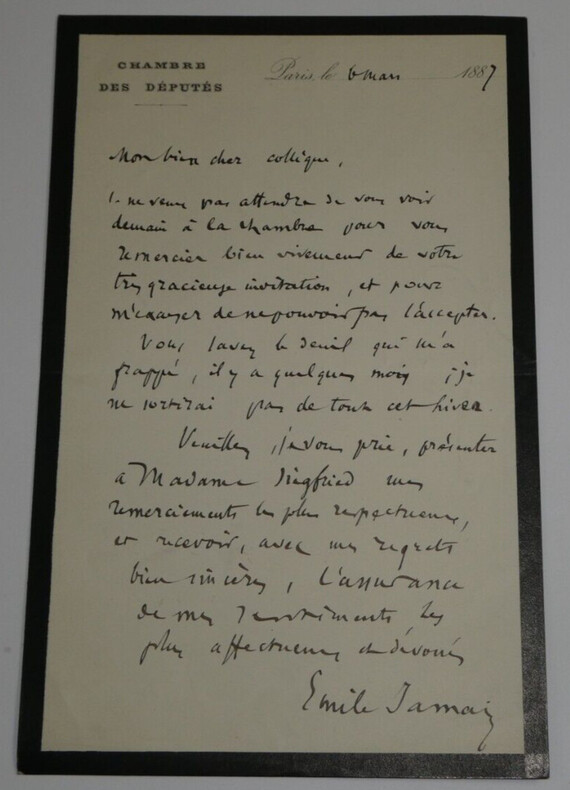 CHAMBRE
DES DÉPUTÉS
Paris, le 6 mars 1887
Mon bien cher collègue,
Je ne veux pas attendre de vous voir
demain à la chambre pour vous
remercier bien vivement de votre
très gracieuse invitation, et pour
m'excuser de ne pouvoir pas l'accepter.
Vous savez le deuil qui m'a
frappé, il y a quelques mois ; je
ne sortirai pas de tout cet hiver.
Veuillez, je vous prie, présenter
à Madame Siegfried mes
remerciements les plus respectueux,
et recevoir, avec mes regrets
bien sincères, l'assurance
de mes sentiments les
plus affectueux et dévoués
Emile Jamais